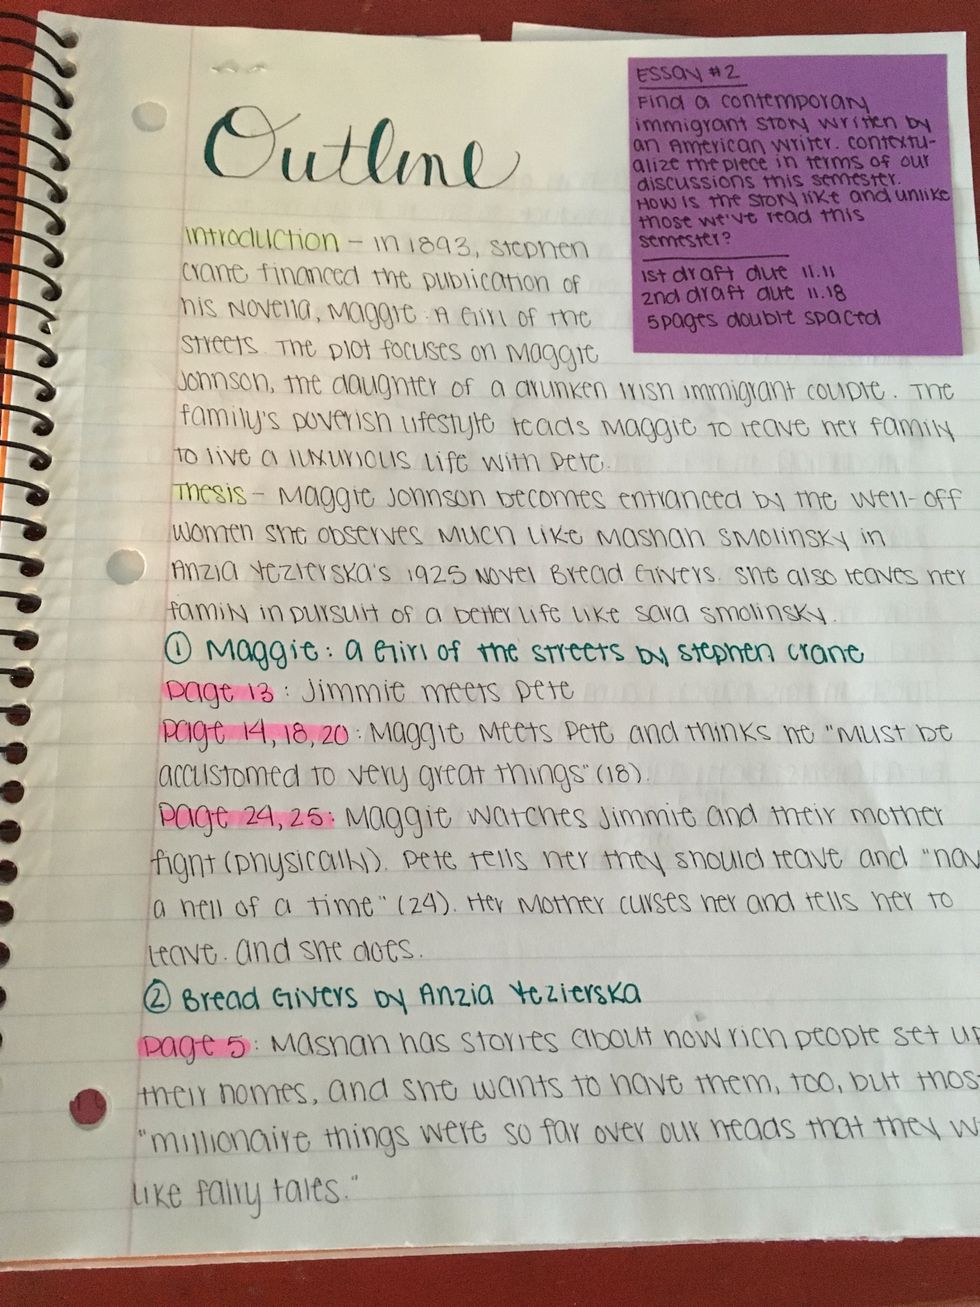 Outline
ESSAY #2
Find a contemporary
immigrant story written by
an American writer. Contextu-
alize the piece in terms of our
discussions this semester.
How is the story like and unlike
those we've read this
semester?
1st draft due 11.11
2nd draft due 11.18
5 pages double spaced
Introduction - In 1893, Stephen
Crane financed the publication of
his novella, Maggie: A Girl of the
Streets. The plot focuses on Maggie
Johnson, the daughter of a drunken Irish immigrant couple. The
family's poverish lifestyle leads Maggie to leave her family
to live a luxurious life with Pete.
Thesis - Maggie Johnson becomes entranced by the well-off
women she observes much like Mashah Smolinsky in
Anzia Yezierska's 1925 novel Bread Givers. She also leaves her
family in pursuit of a better life like Sara Smolinsky.
① Maggie: A Girl of the Streets by Stephen Crane
Page 13: Jimmie meets Pete
Page 14, 18, 20: Maggie meets Pete and thinks he "must be
accustomed to very great things" (18).
Page 24, 25: Maggie watches Jimmie and their mother
fight (physically). Pete tells her they should leave and "hav
a hell of a time" (24). Her mother curses her and tells her to
leave. And she does.
② Bread Givers by Anzia Yezierska
Page 5: Mashah has stories about how rich people set up
their homes, and she wants to have them, too, but thos
"millionaire things were so far over our heads that they w
like fairy tales."